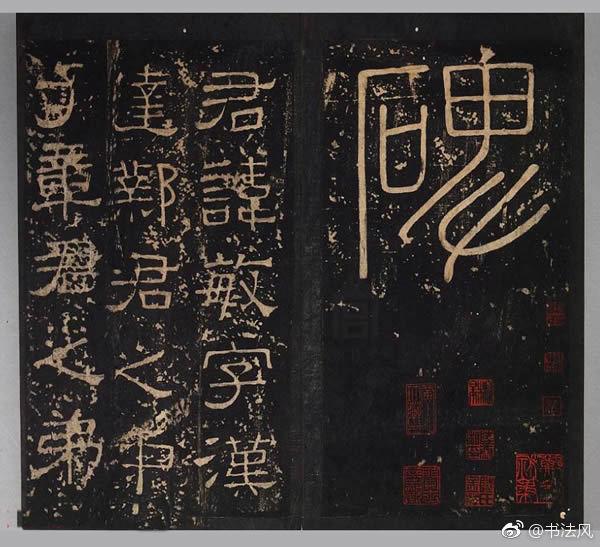 碑
君諱敏字漢
達鄭君之中
子章君之弟
@书法风